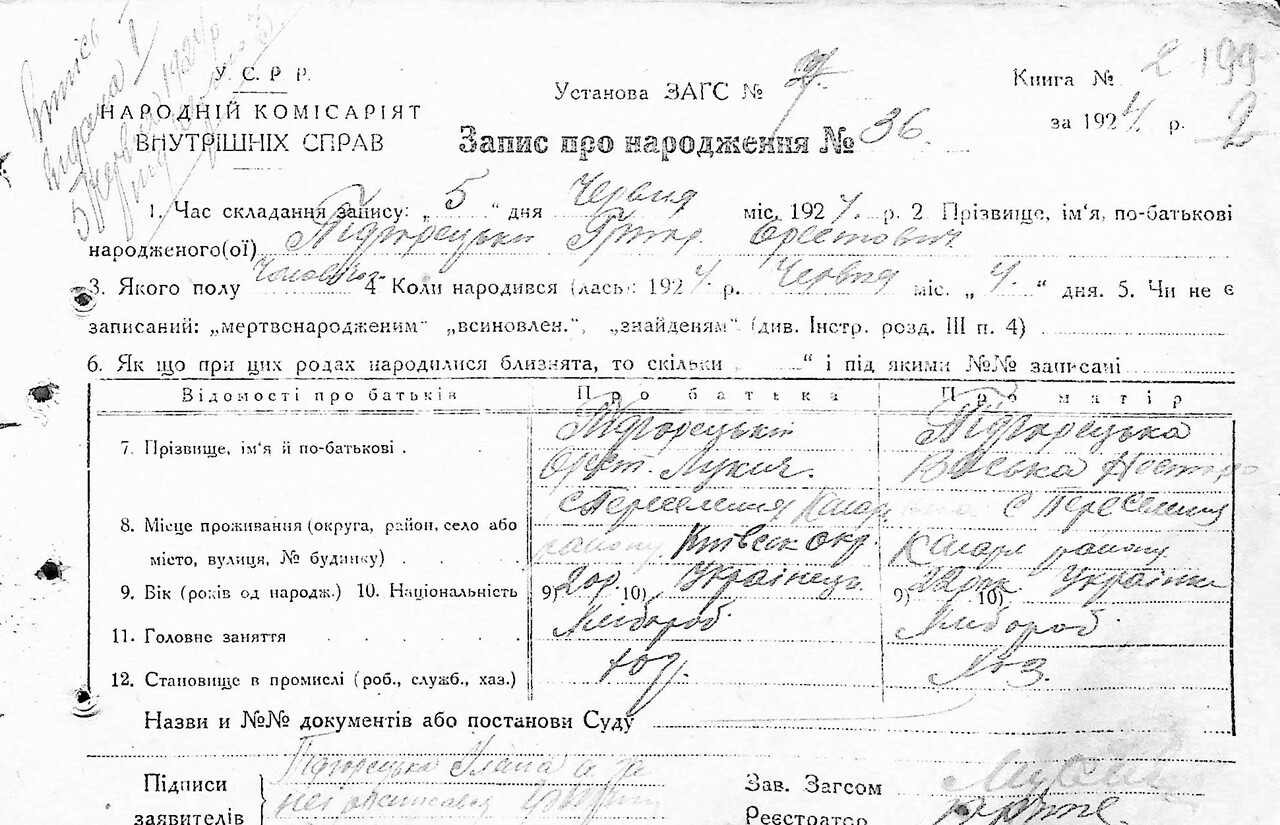 Витяг
видано
5 червня 1924 р
У. С. Р. Р.
НАРОДНІЙ КОМІСАРІЯТ
ВНУТРІШНІХ СПРАВ
Установа ЗАГС №
Книга № 2 199
за 1924 р. 2
Запис про народження № 36.
1. Час складання запису: „ 5 “ дня Червня міс. 1924. р. 2 Прізвище, ім‘я, по-батькові
народженого(ої) Підгорецький Григор. Орестович
3. Якого полу Чоловічог. 4 Коли народився (лась): 1924 р. Червня міс. „ 4. “ дня. 5. Чи не є
записаний: „мертвонародженим“ „всиновлен.“, „знайденям“ (див. Інстр. розд. III п. 4)
6. Як що при цих родах народилися близнята, то скільки “ і під якими №№ записані
Відомості про батьків Про батька Про матір
7. Прізвище, ім‘я й по-батькові . Підгорецький Підгорецька
Орест. Лукич. Васька Нестор
с Переселення Кагар с Переселення
8. Місце проживання (округа, район, село або
місто, вулиця, № будинку) . . району Київськ окр. Кагарл району
9. Вік (років од народж.) 10. Національність 9) 10) Українець 9) 22 рок. 10) Українка
11. Головне заняття . . . . . Хлібороб Хлібороб.
12. Становище в промислі (роб., служб., хаз.) Хоз.
Назви и №№ документів або постанови Суду
Підписи Підгорецька а за
заявителів неї
Зав. Загсом
Реєстратор